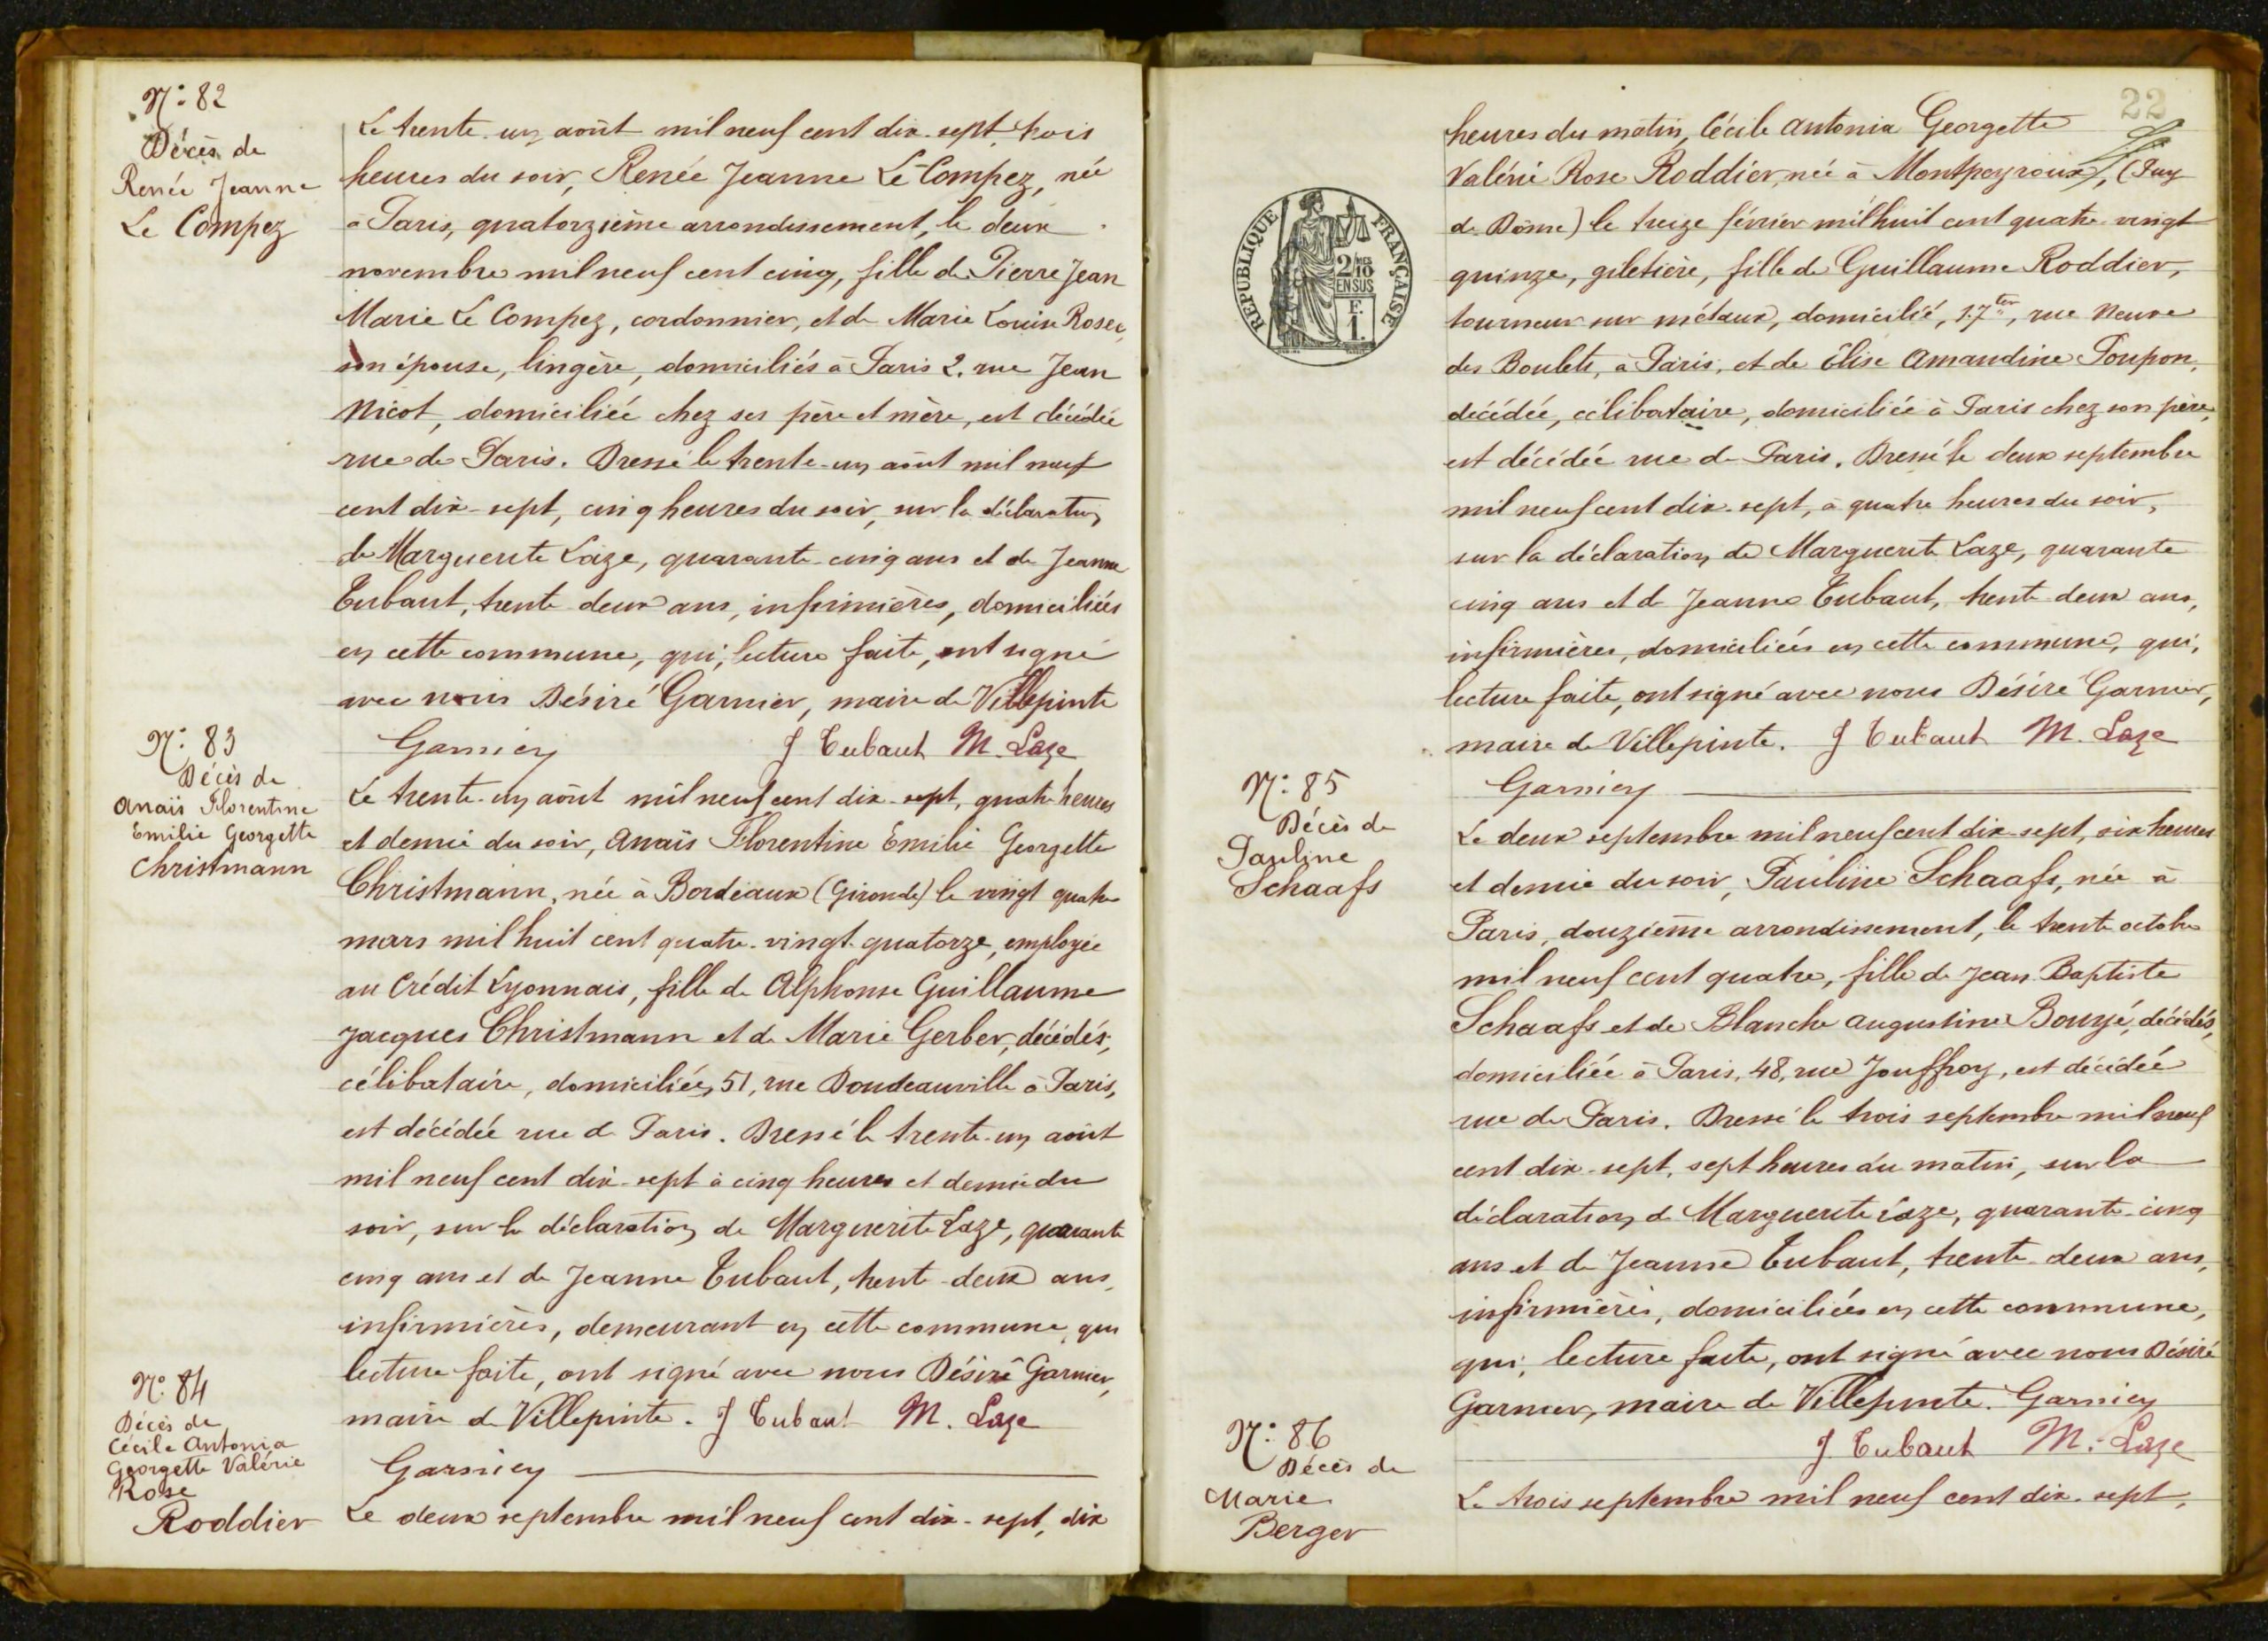 N° 82
Décès de
Renée Jeanne
Le Compez
Le trente-un août mil neuf cent dix-sept, trois
heures du soir, Renée Jeanne Le Compez, née
à Paris, quatorzième arrondissement, le deux
novembre mil neuf cent cinq, fille de Pierre Jean
Marie Le Compez, cordonnier, et de Marie Louise Rosec,
son épouse, lingère, domiciliés à Paris 2, rue Jean
Nicot, domiciliée chez ses père et mère, est décédée
rue de Paris. Dressé le trente-un août mil neuf
cent dix-sept, cinq heures du soir, sur la déclaration
de Marguerite Laze, quarante-cinq ans et de Jeanne
Tubaut, trente-deux ans, infirmières, domiciliées
en cette commune, qui, lecture faite, ont signé
avec nous Désiré Garnier, maire de Villepinte
Garnier J Tubaut M. Laze
N° 83
Décès de
Anaïs Florentine
Emilie Georgette
Christmann
Le trente-un août mil neuf cent dix-sept, quatre heures
et demie du soir, Anaïs Florentine Emilie Georgette
Christmann, née à Bordeaux (Gironde) le vingt quatre
mars mil huit cent quatre-vingt-quatorze, employée
au Crédit Lyonnais, fille de Alphonse Guillaume
Jacques Christmann et de Marie Gerber, décédés,
célibataire, domiciliée, 51, rue Doudeauville à Paris,
est décédée rue de Paris. Dressé le trente-un août
mil neuf cent dix-sept à cinq heures et demie du
soir, sur la déclaration de Marguerite Laze, quarante
cinq ans et de Jeanne Tubaut, trente-deux ans,
infirmières, demeurant en cette commune, qui
lecture faite, ont signé avec nous Désiré Garnier,
maire de Villepinte. J Tubaut M. Laze
Garnier
N° 84
Décès de
Cécile Antonia
Georgette Valérie
Rose
Roddier
Le deux septembre mil neuf cent dix-sept, dix
22
REPUBLIQUE FRANÇAISE
2/10 MES
EN SUS
F.
1.
heures du matin, Cécile Antonia Georgette
Valérie Rose Roddier, née à Montpeyroux, (Puy
de Dôme) le treize février mil huit cent quatre vingt
quinze, giletière, fille de Guillaume Roddier,
tourneur sur métaux, domicilié, 17ter, rue Neuve
des Boulets, à Paris, et de Elise Amandine Poupon,
décédée, célibataire, domiciliée à Paris chez son père,
est décédée rue de Paris. Dressé le deux septembre
mil neuf cent dix-sept, à quatre heures du soir,
sur la déclaration de Marguerite Laze, quarante
cinq ans et de Jeanne Tubaut, trente-deux ans,
infirmières, domiciliées en cette commune, qui,
lecture faite, ont signé avec nous Désiré Garnier,
maire de Villepinte. J Tubaut M. Laze
Garnier
N° 85
Décès de
Pauline
Schaafs
Le deux septembre mil neuf cent dix-sept, six heures
et demie du soir, Pauline Schaafs, née à
Paris, douzième arrondissement, le trente octobre
mil neuf cent quatre, fille de Jean Baptiste
Schaafs et de Blanche Augustine Bouyé, décédés,
domiciliée à Paris, 48, rue Jouffroy, est décédée
rue de Paris. Dressé le trois septembre mil neuf
cent dix-sept, sept heures du matin, sur la
déclaration de Marguerite Laze, quarante-cinq
ans et de Jeanne Tubaut, trente-deux ans,
infirmières, domiciliées en cette commune,
qui, lecture faite, ont signé avec nous Désiré
Garnier, maire de Villepinte. Garnier
J Tubaut M. Laze
N° 86
Décès de
Marie
Berger
Le trois septembre mil neuf cent dix-sept,